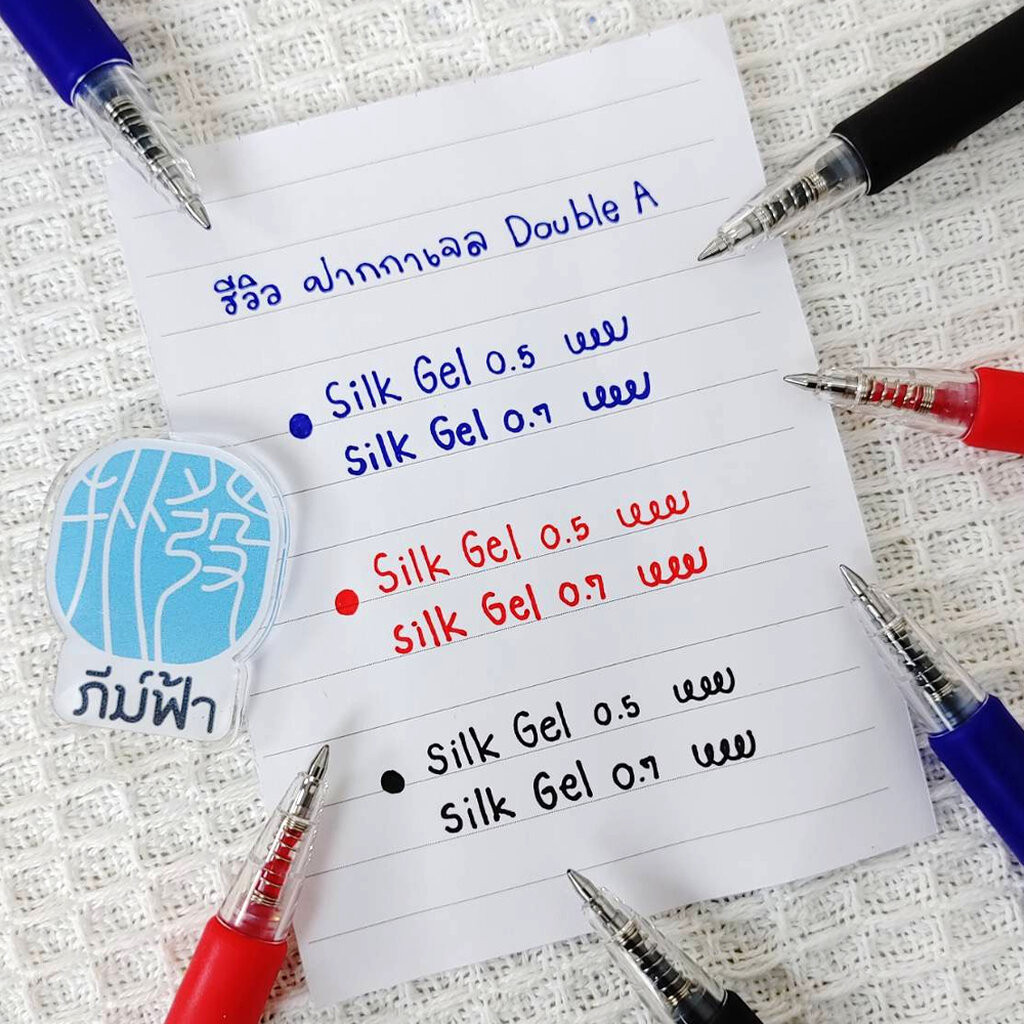 รีวิว ปากกาเจล Double A
Silk Gel 0.5
Silk Gel 0.7
Silk Gel 0.5
Silk Gel 0.7
Silk Gel 0.5
Silk Gel 0.7
ภีม์ฟ้า